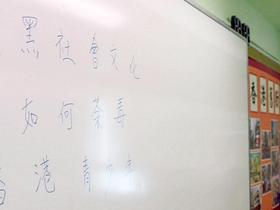 黑社會文化
如何荼毒
港青
香港